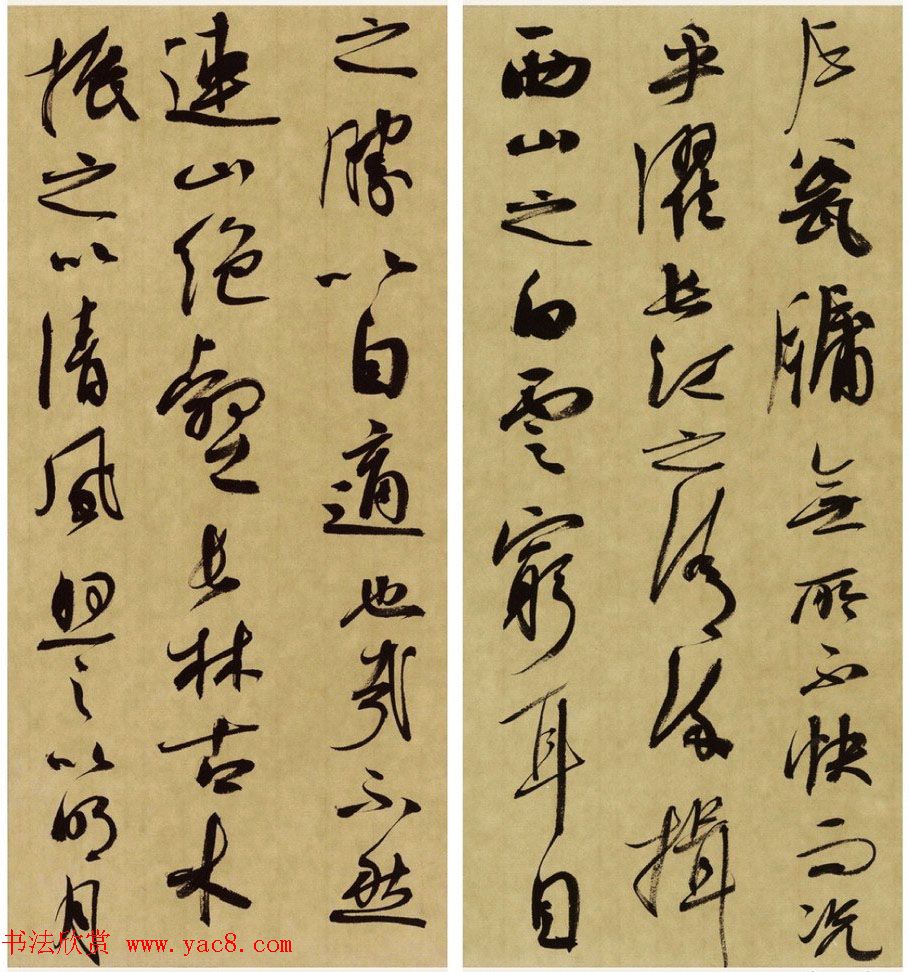 户瓮牖無所不快而况
乎濯長江之清流揖
西山之白雲窮耳目
之勝以自適也哉不然
連山绝壑長林古木
振之以清風照之以明月
书法欣赏 www.yac8.com